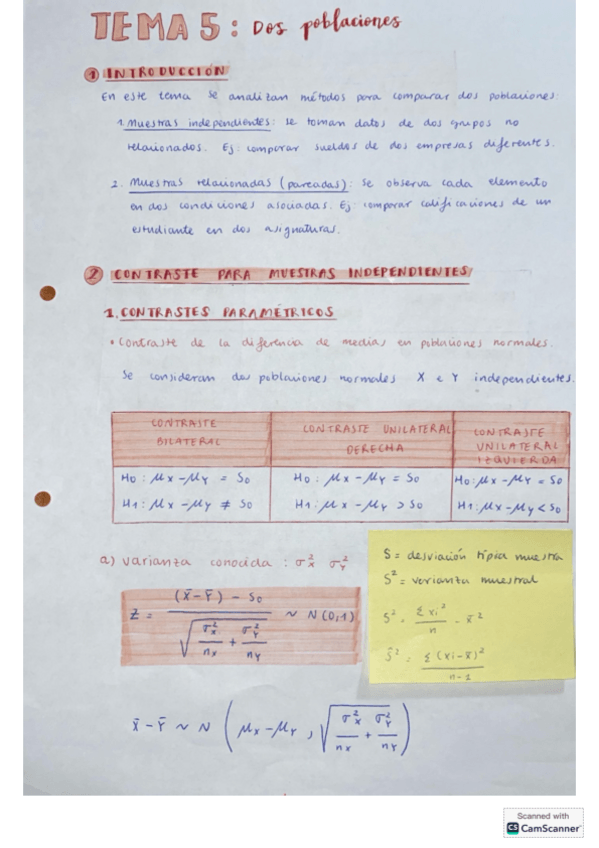 TEMA 5 : Dos poblaciones
1 INTRODUCCIÓN
En este tema se analizan métodos para comparar dos poblaciones:
1. Muestras independientes: se toman datos de dos grupos no
relacionados. Ej: comparar sueldos de dos empresas diferentes.
2. Muestras relacionadas (pareadas): se observa cada elemento
en dos condiciones asociadas. Ej: comparar calificaciones de un
estudiante en dos asignaturas.
2 CONTRASTE PARA MUESTRAS INDEPENDIENTES
1. CONTRASTES PARAMÉTRICOS
• Contraste de la diferencia de medias en poblaciones normales.
Se consideran dos poblaciones normales X e Y independientes.
CONTRASTE
BILATERAL
H0 : μx - μy = S0
H1 : μx - μy ≠ S0
CONTRASTE UNILATERAL
DERECHA
H0 : μx - μy = S0
H1 : μx - μy > S0
CONTRASTE
UNILATERAL
IZQUIERDA
H0 : μx - μy = S0
H1 : μx - μy < S0
a) Varianza conocida : σ²x σ²y
Z = ((X̄ - Ȳ) - S0) / √(σ²x/nx + σ²y/ny) ~ N(0,1)
S = desviación típica muestra
S² = varianza muestral
S² = Σxi²/n - x̄²
Ŝ² = Σ(xi - x̄)²/n-1
X̄ - Ȳ ~ N (μx - μy , √(σ²x/nx + σ²y/ny))
Scanned with
CS CamScanner